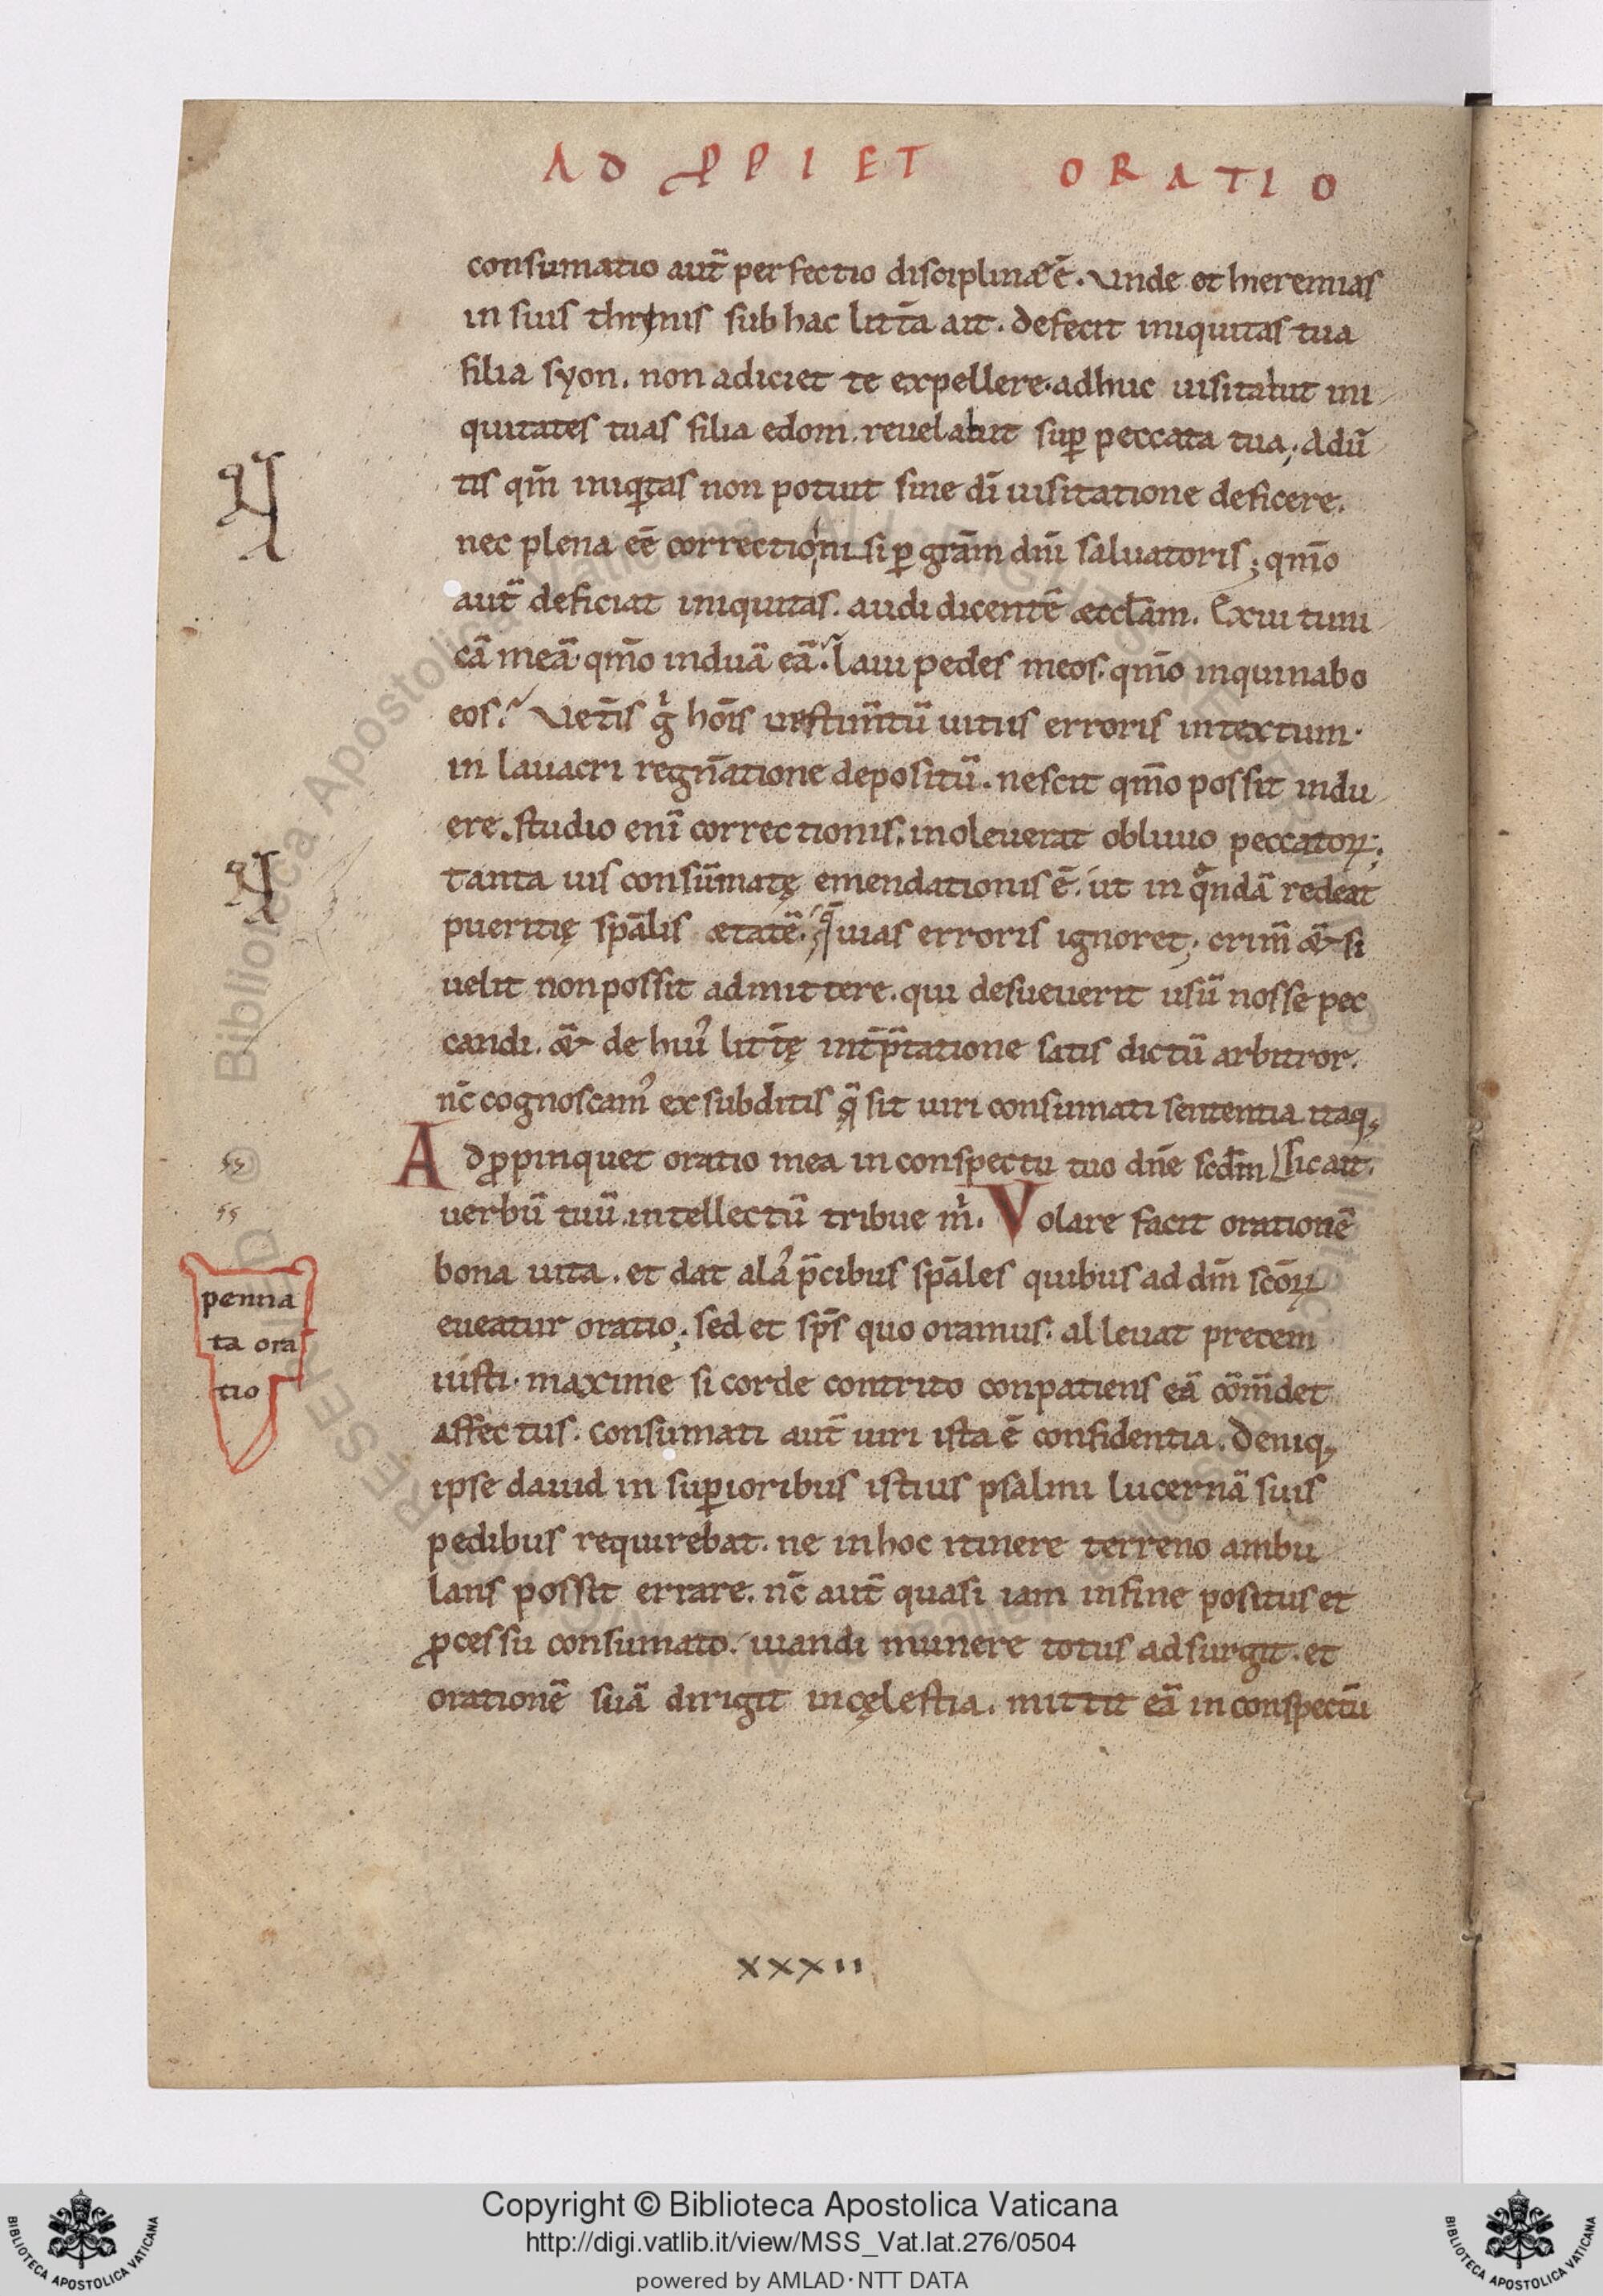 AD ꝓPIET ORATIO
consumatio aut̄ perfectio disciplinæ ē. Unde et hieremias
in suis thrynis sub hac litt̄a ait. defecit iniquitas tua
filia syon. non adiciet te expellere. adhuc uisitabit ini
quitates tuas filia edom. reuelabit suꝑ peccata tua; Adū
tis qm̄ iniqitas non potuit sine dī uisitatione deficere.
nec plena eē correctio ni si ꝑ gr̄am dn̄i saluatoris; qm̄o
aut̄ deficiat iniquitas. audi dicentē æccl̄am. Exui tuni
cā meā qm̄o induā eā? laui pedes meos. qm̄o inquinabo
eos? Uet̄is g̊ hōis uestim̄tū uitiis erroris intextum.
in lauacri regn̄atione depositū. nescit qm̄o possit indu
ere. studio enī correctionis. inoleuerat obliuio peccatoꝝ;
tanta uis consūmatę emendationis ē. ut in qͣndā redeat
pueritię sp̄alis ætatē. q̄ uias erroris ignoret; crim̄ & si
uelit non possit admittere. qui desueuerit usū nosse pec
candi. & de huiꝰ litt̄ę int̄p̄tatione satis dictū arbitror.
nc̄ cognoscamꝰ ex subditis q̄ sit uiri consumati sententia. itaq;
Adꝓpinquet oratio mea in conspectu tuo dn̄e scdm̄ sic ait.
uerbū tuū. intellectū tribue m̊. Volare facit orationē
bona uita. et dat alaꝰ p̄cibus sp̄ales quibus ad dm̄ sc̄oꝝ
eueatur oratio; sed et sp̄s quo oramus. alleuat precem
iusti. maxime si corde contrito conpatiens eā cōm̄det
affectus. Consumati aut̄ uiri ista ē confidentia. Deniq;
ipse dauid in suꝑioribus istius psalmi lucernā suis
pedibus requirebat. ne in hoc itinere terreno ambu
lans possit errare. nc̄ aut̄ quasi iam in fine positus et
ꝓcessu consumato. uiandi munere totus adsurgit. et
orationē suā dirigit in cęlestia. mittit eā in conspectū
penna
ta ora
tio
xxxii
Copyright © Biblioteca Apostolica Vaticana
http://digi.vatlib.it/view/MSS_Vat.lat.276/0504
powered by AMLAD·NTT DATA
BIBLIOTECA APOSTOLICA VATICANA
BIBLIOTECA APOSTOLICA VATICANA